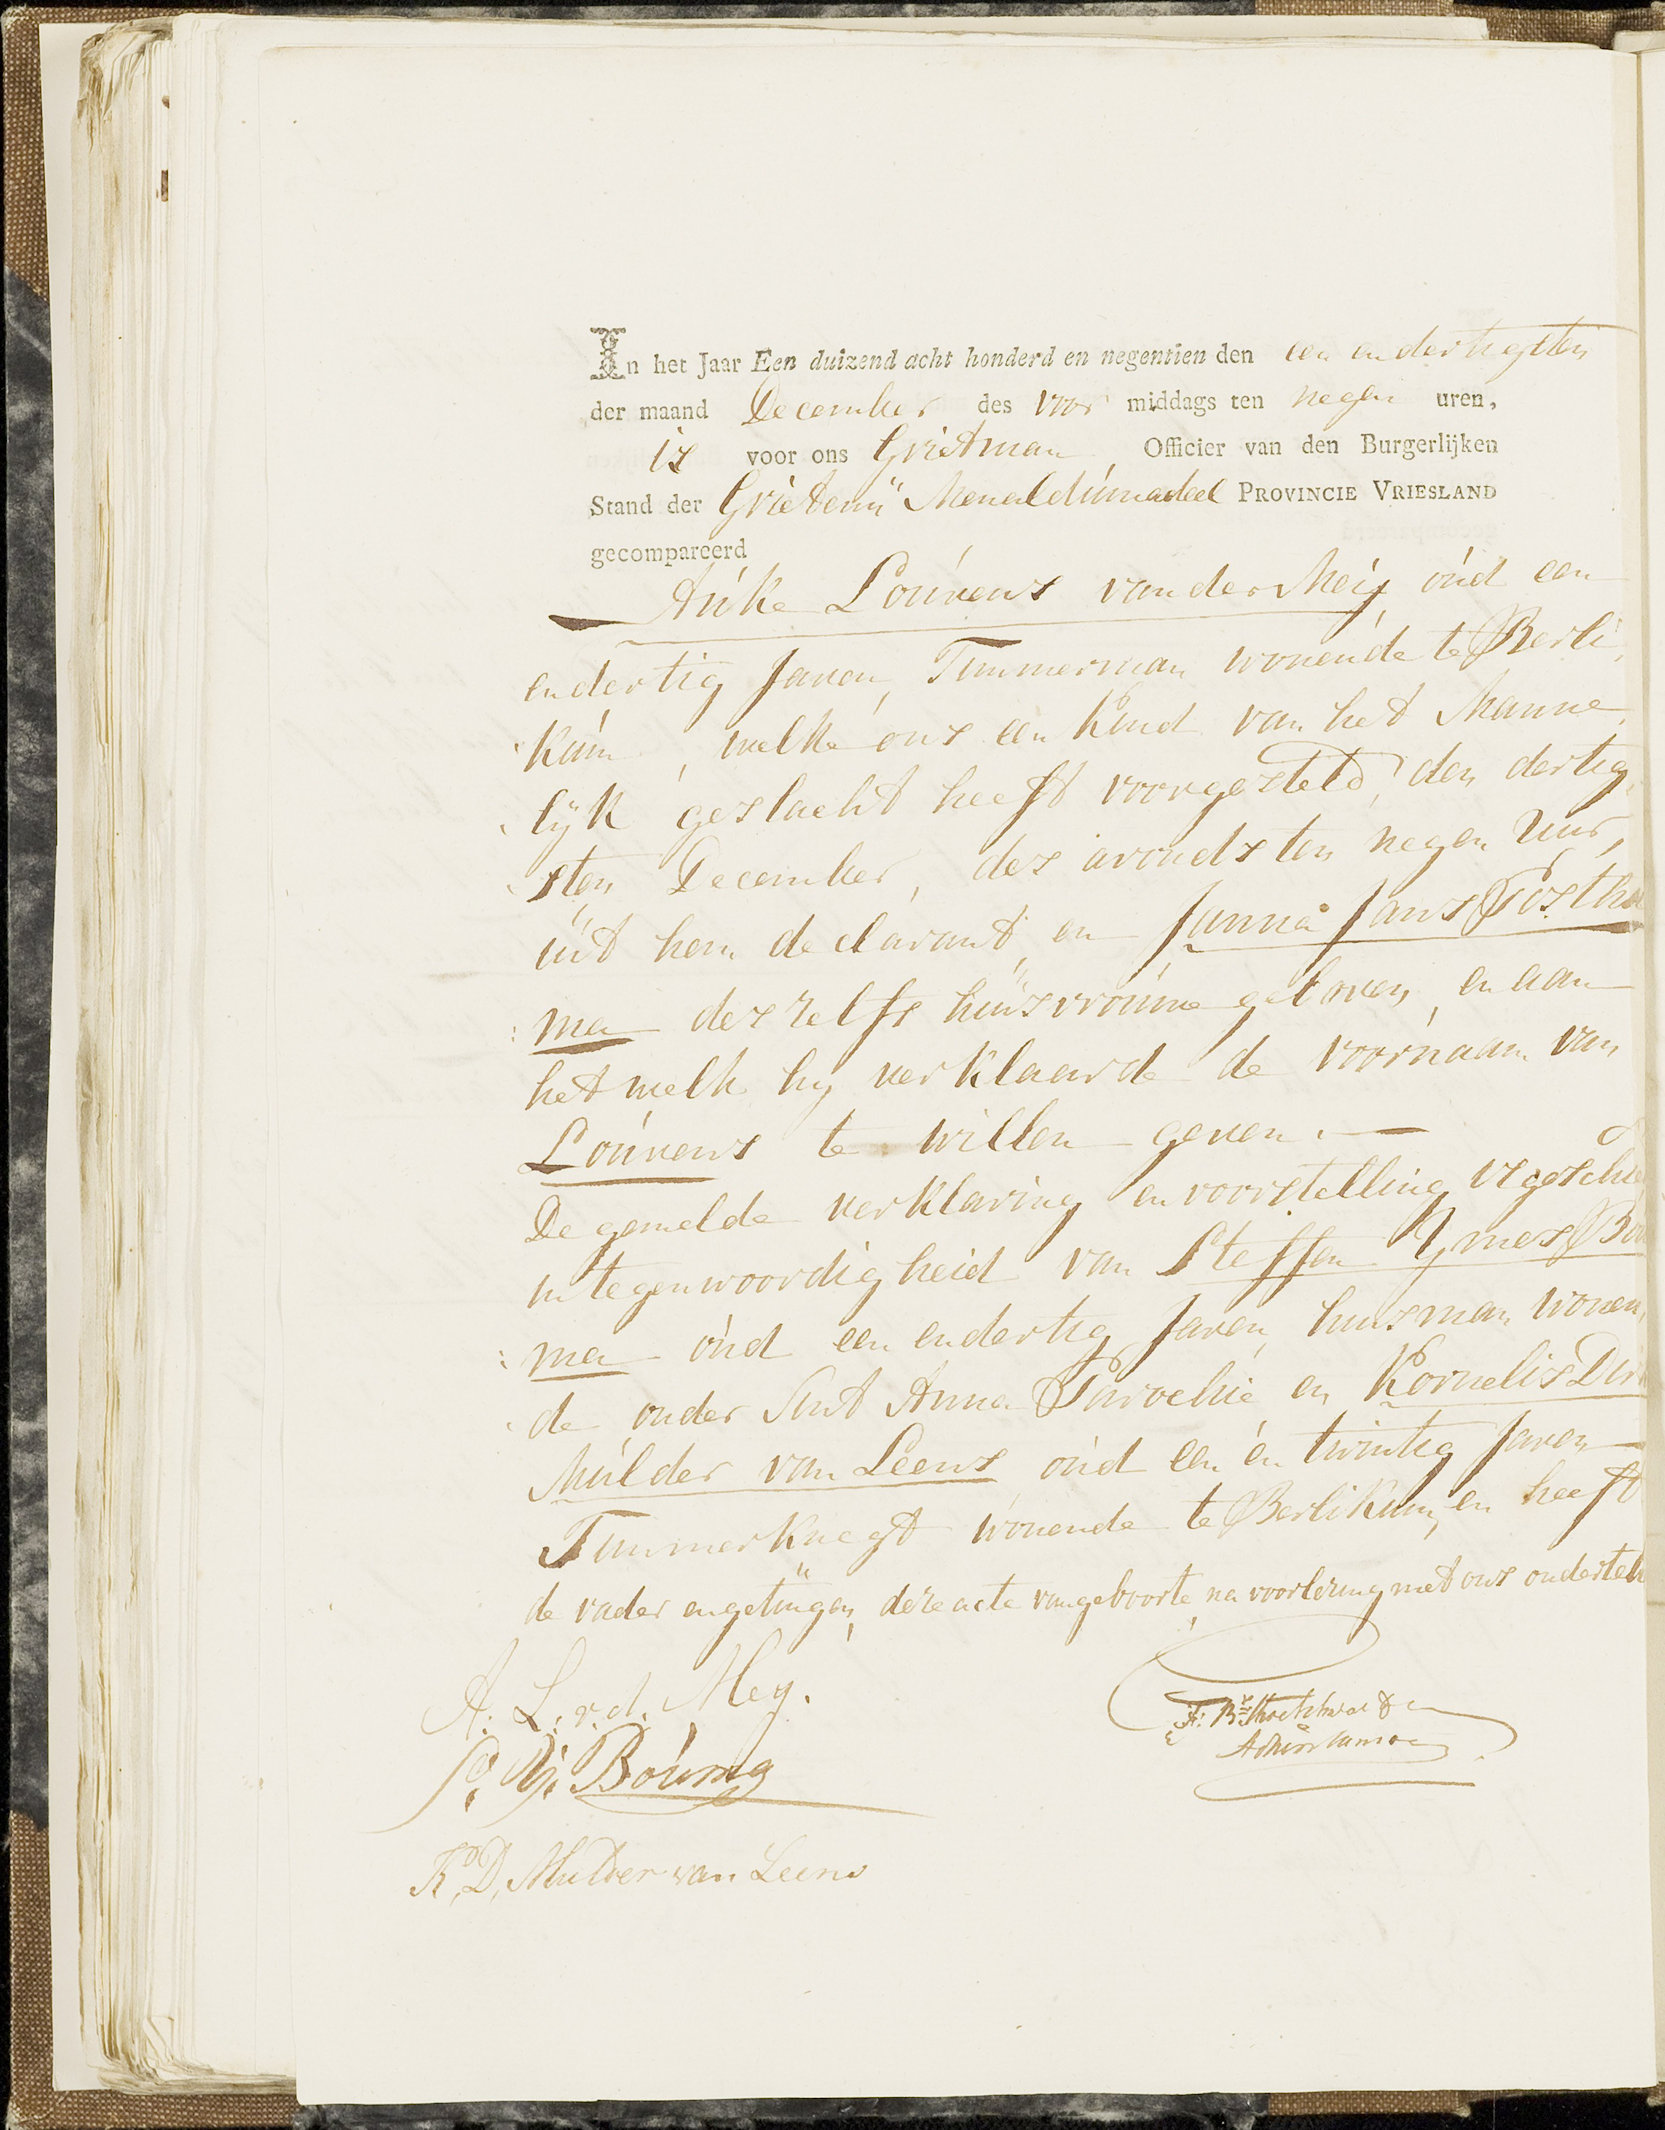 In het Jaar Een duizend acht honderd en negentien den een en dertigsten
der maand December des voor middags ten negen uren,
is voor ons Grietman Officier van den Burgerlijken
Stand der Grietenij Menaldumadeel PROVINCIE VRIESLAND
gecompareerd
Auke Louwens van der Meij oud een
en dertig Jaren, Timmerman wonende te Berli
kum, welke ons een Kind van het Manne
lijk geslacht heeft voorgesteld, den dertig
sten December, des avonds ten negen uur,
uit hem declarant, en Janna Jans Posthu
ma deszelfs huisvrouwe geboren, en aan
het welk hij verklaarde de voornaam van
Louwens te willen geven.
De gemelde verklaring en voorstelling is geschied
in tegenwoordigheid van Steffen Ymes Bou
ma oud een en dertig Jaren, huisman wonen
de onder Sint Anna Parochie en Kornelis Dirk
Mulder van Leens oud een en twintig Jaren
Timmerknegt wonende te Berlikum, en heeft
de vader en getuigen, deze acte van geboorte, na voorlezing met ons onderteke
A. L. v. d. Mey.
S. Y. Bouma
K. D. Mulder van Leens